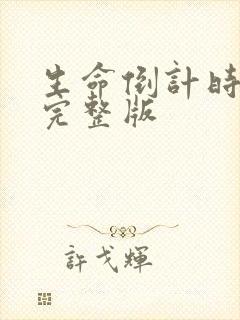 生命倒計時
完整版
許戈輝